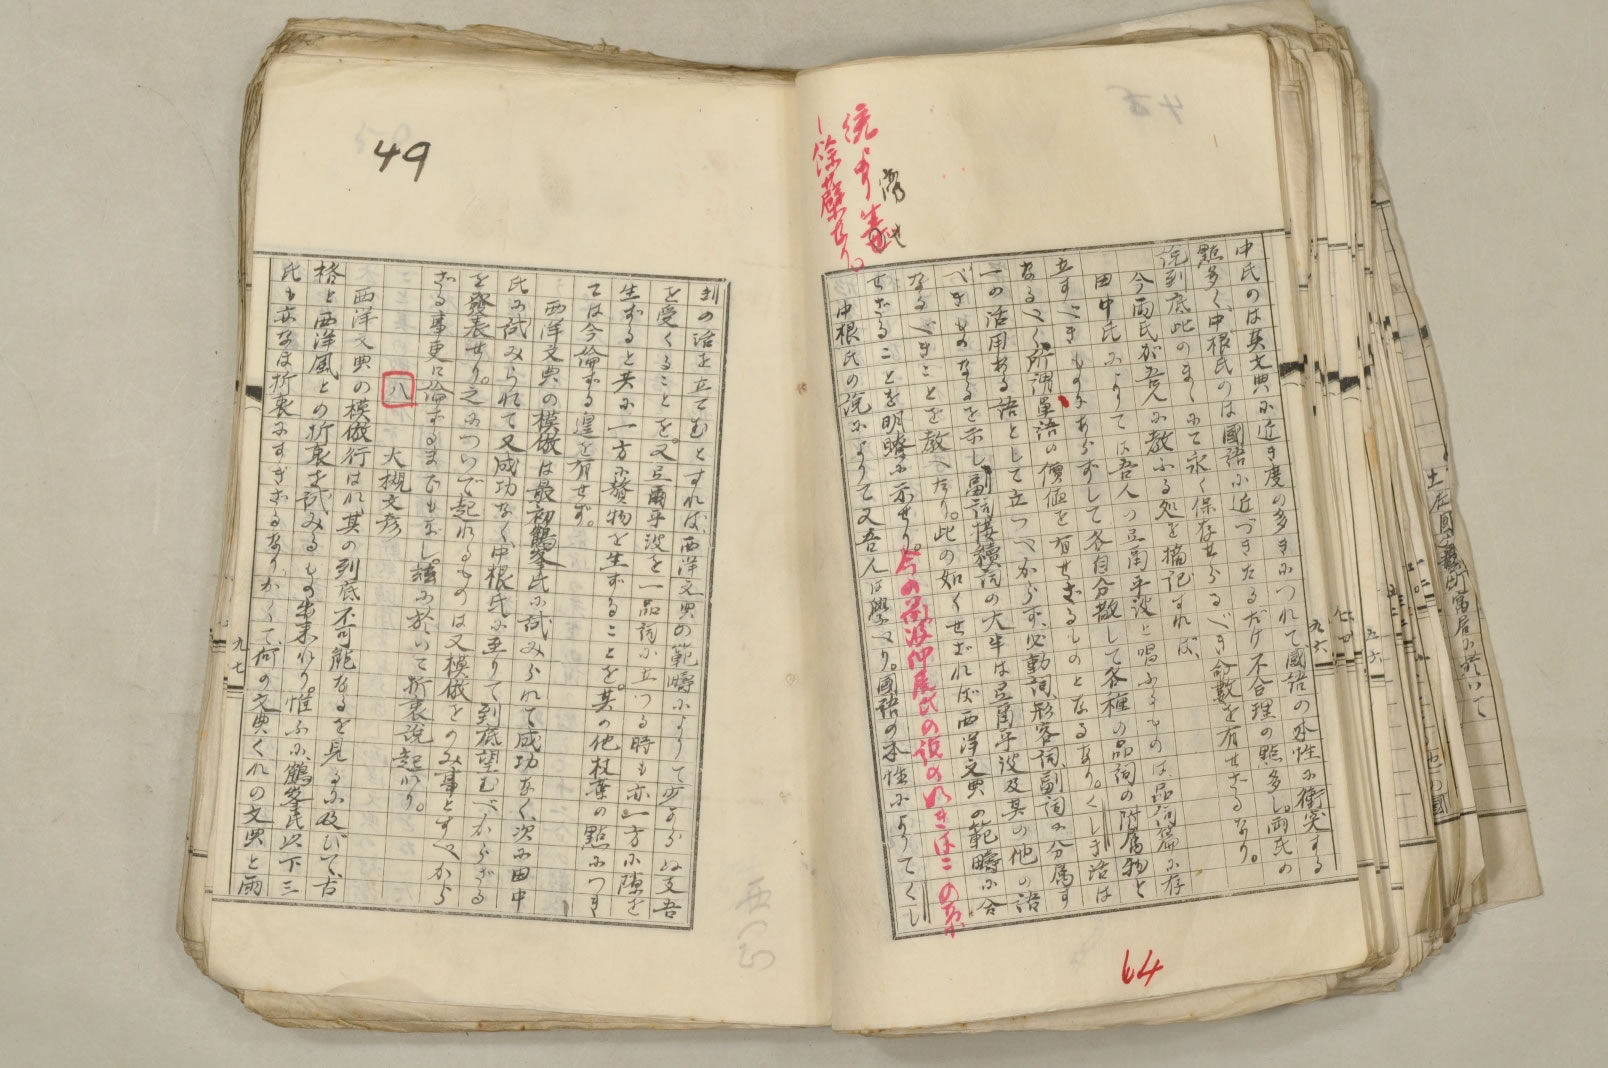 中氏のは英文典に近き度の多きにつれて國語の本性に衝突する
點多く、中根氏のは國語に近づきたるだけ不合理の點多し。両氏の
説到底此のまゝにて永く保存せらるべき命數を有せざるなり。
今両氏が吾人に教ふる処を摘記すれば、
田中氏によりては吾人の弖爾乎波と唱ふるものは品詞篇に存
立すべきものにあらずして各自分散して各種の品詞の附属物と
なるべく、所謂單語の價値を有せざるものとなるなり。くしき活は
一の活用ある語として立つべからず、必動詞、形容詞、副詞に分属す
べきものなるを示し、副詞接續詞の大半は弖爾乎波及其の他の語
なるべきことを教へたり。此の如くせざれば西洋文典の範疇に合
せざることを明瞭に示せり。今の
中根氏の説によりて又吾人は學べり。國語の本性によりてくし
64
九六
49
きの活を立てむとすれば、西洋文典の範疇によりて少からぬ支吾
を受くることを。又弖爾乎波を一品詞に立つる時も亦一方に隙を
生ずると共に一方に贅物を生ずることを。其の他枝葉の點につき
ては今倫ずる遑を有せず。
西洋文典の模倣は最初鶴峯氏に試みられて成功なく、次に田中
氏に試みられて又成功なく、中根氏に至りて到底望むべからざる
を發表せり。之について起れるものは又模倣をのみ事とすべから
ざる事更に倫ずるまでもなし。茲に於いて折衷説起れり。
八 大槻文彦
西洋文典の模倣行はれ其の到底不可能なるを見るに及びて、古
格と西洋風との折衷を試みるもの出来れり。惟ふに鶴峯氏以下三
氏も亦なほ折衷にすぎざるなり。かくて何の文典くれの文典と雨
九七